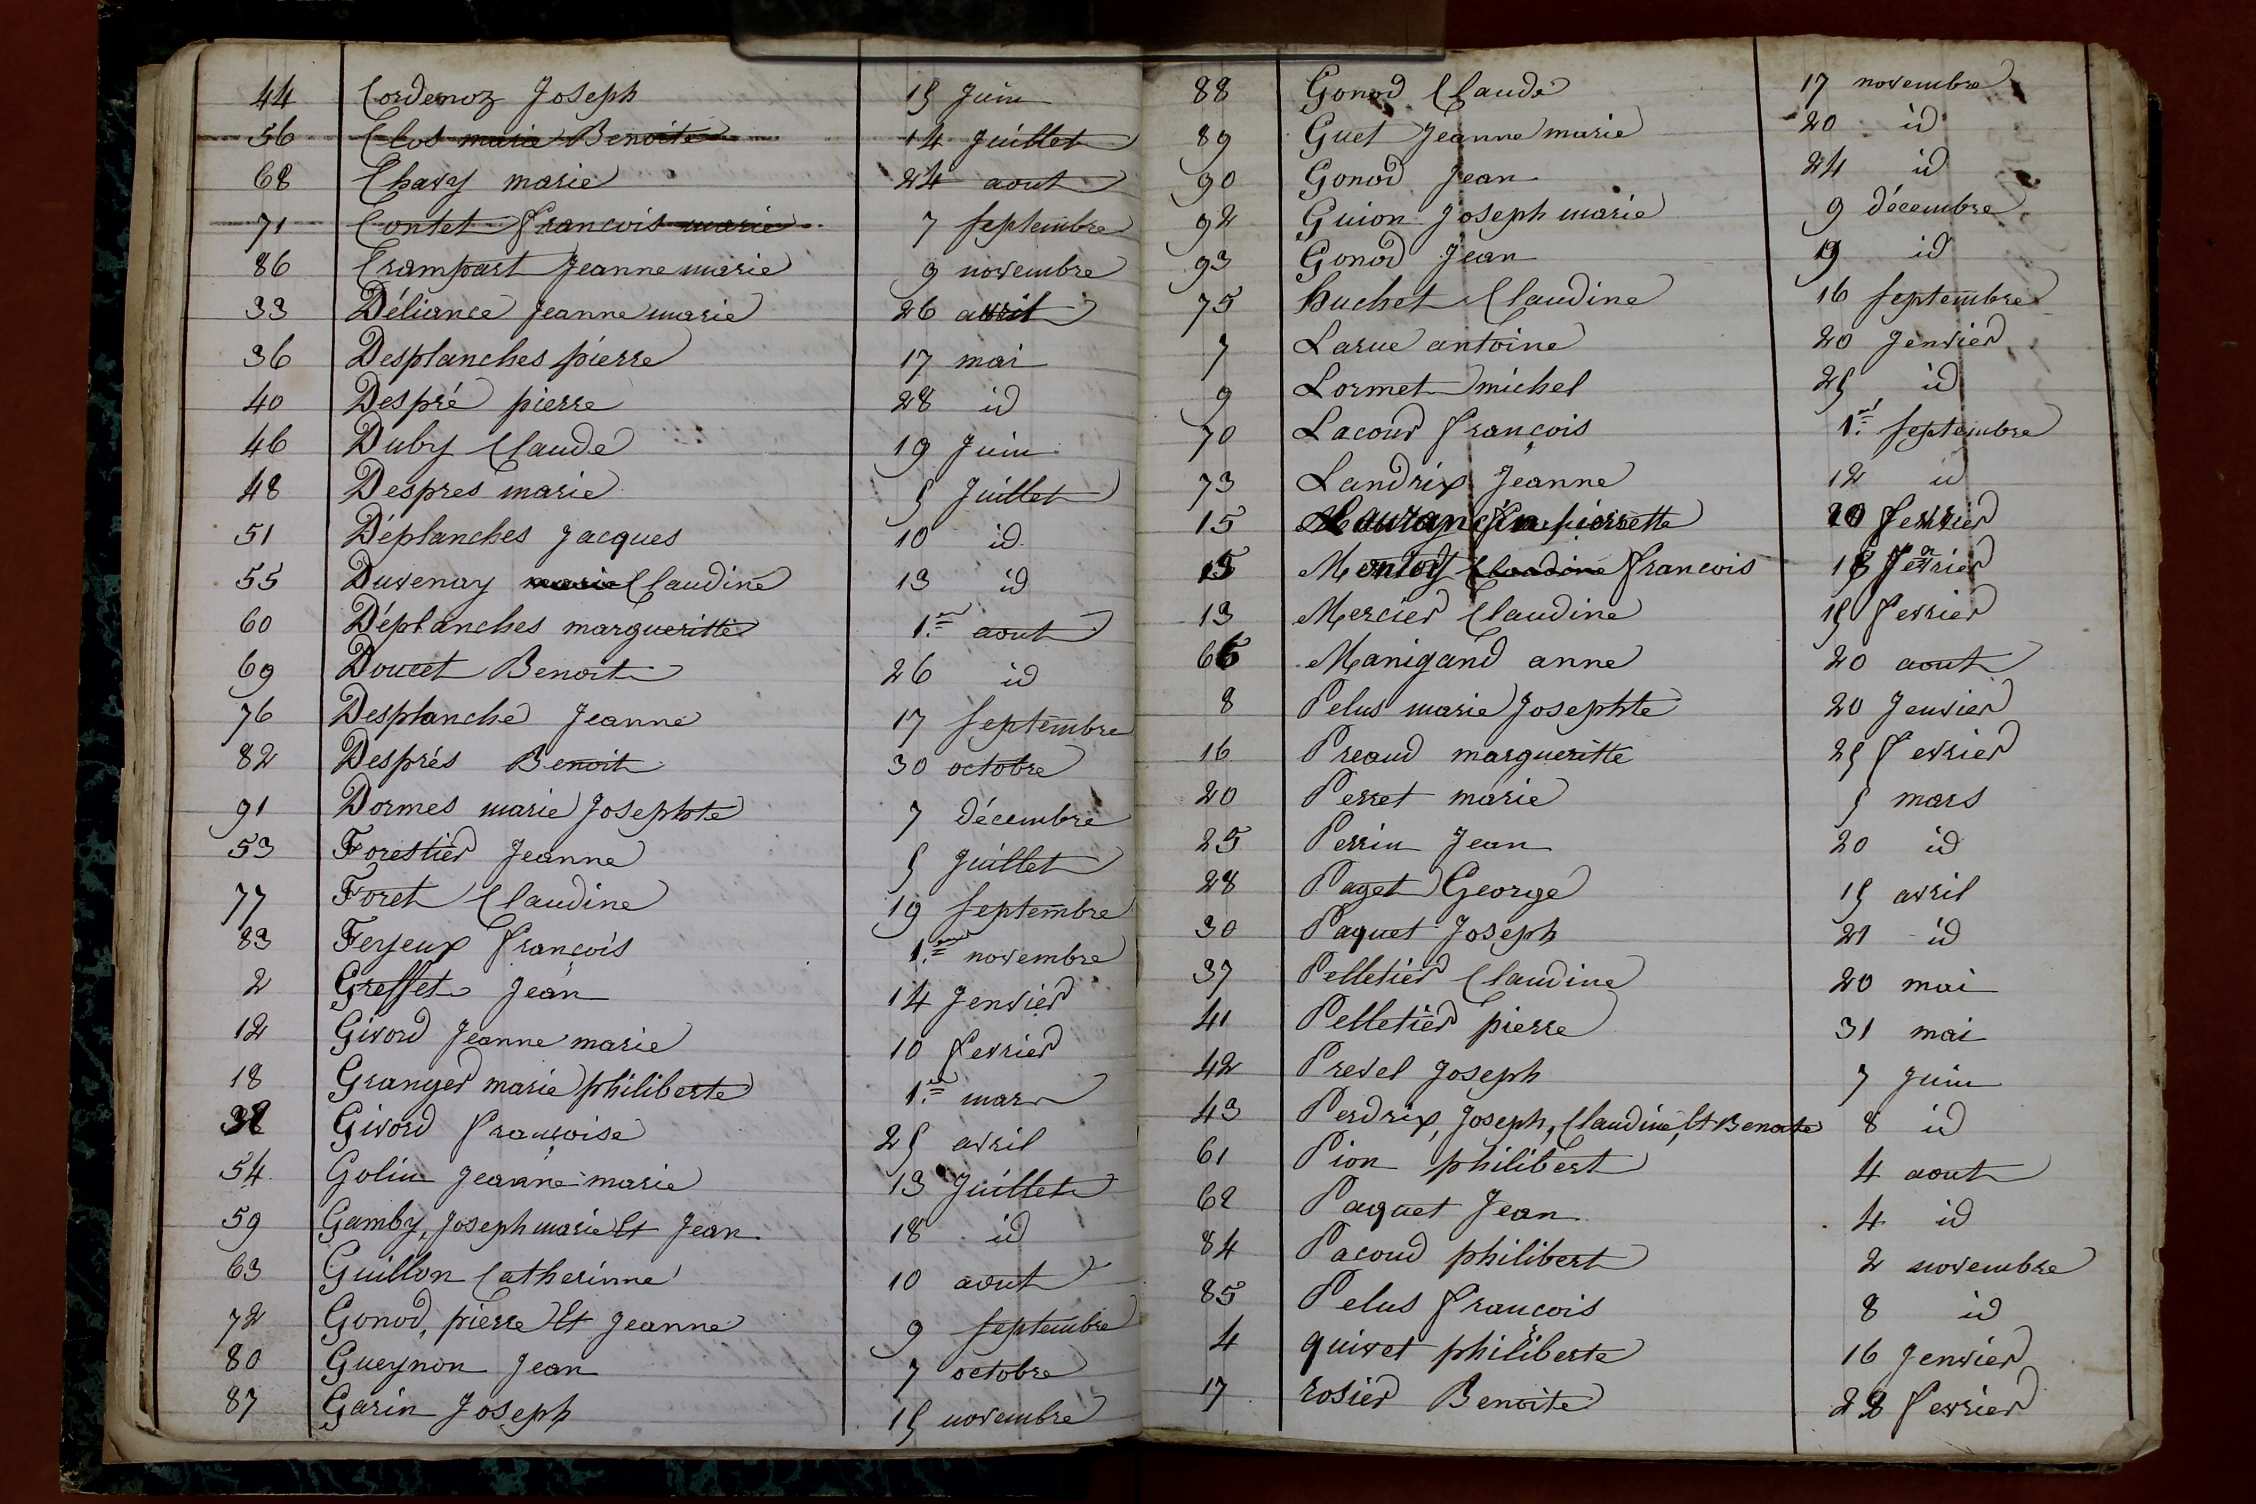 44 Cordenoz Joseph 15 Juin
56 Clos marie Benoite 14 Juillet
68 Chavy marie 24 aout
71 Contet francois marie 7 septembre
86 Crampart Jeanne marie 9 novembre
33 Déliance Jeanne marie 26 avril
36 Desplanches pierre 17 mai
40 Despré pierre 28 id
46 Duby Claude 19 Juin
48 Despres marie 5 Juillet
51 Déplanches Jacques 10 id
55 Duvenay marie Claudine 13 id
60 Déplanches margueritte 1er aout
69 Doucet Benoit 26 id
76 Desplanche Jeanne 17 septembre
82 Després Benoit 30 octobre
91 Dormes marie Josephte 7 décembre
53 Forestier Jeanne 5 Juillet
77 Foret Claudine 19 septembre
83 Feyeux françois 1er novembre
2 Greffet Jean 14 Jenvier
12 Givord Jeanne marie 10 fevrier
18 Granger marie philiberte 1er mars
32 Givord françoise 25 avril
54 Golin Jeanne marie 13 Juillet
59 Gamby, Joseph marie Et Jean 18 id
63 Guillon Catherinne 10 aout
72 Gonod, pierre Et Jeanne 9 septembre
80 Gueynon Jean 7 octobre
87 Garin Joseph 15 novembre
88 Gonod Claude 17 novembre
89 Guet Jeanne marie 20 id
90 Gonod Jean 24 id
92 Guion Joseph marie 9 décembre
93 Gonod Jean 19 id
75 huchet Claudine 16 septembre
7 Larue antoine 20 Jenvier
9 Lormet michel 25 id
70 Lacour françois 1er septembre
73 Landrix Jeanne 12 id
15 pierrette 20 fevrier
Claudine francois fevrier
13 Mercier Claudine 15 fevrier
66 Manigand anne 20 aout
8 Pelus marie Josephte 20 Jenvier
16 Preaud margueritte 25 fevrier
20 Perret marie 5 mars
25 Perrin Jean 20 id
28 Paget George 15 avril
30 Paquet Joseph 21 id
37 Pelletier Claudine 20 mai
41 Pelletier pierre 31 mai
42 Prevel Joseph 7 Juin
43 Perdrix, Joseph, Claudine, Et Benoite 8 id
61 Pion philibert 4 aout
62 Paquet Jean 4 id
84 Pacoud philibert 2 novembre
85 Pelus françois 8 id
4 quivet philiberte 16 Jenvier
17 rosier Benoite 28 fevrier